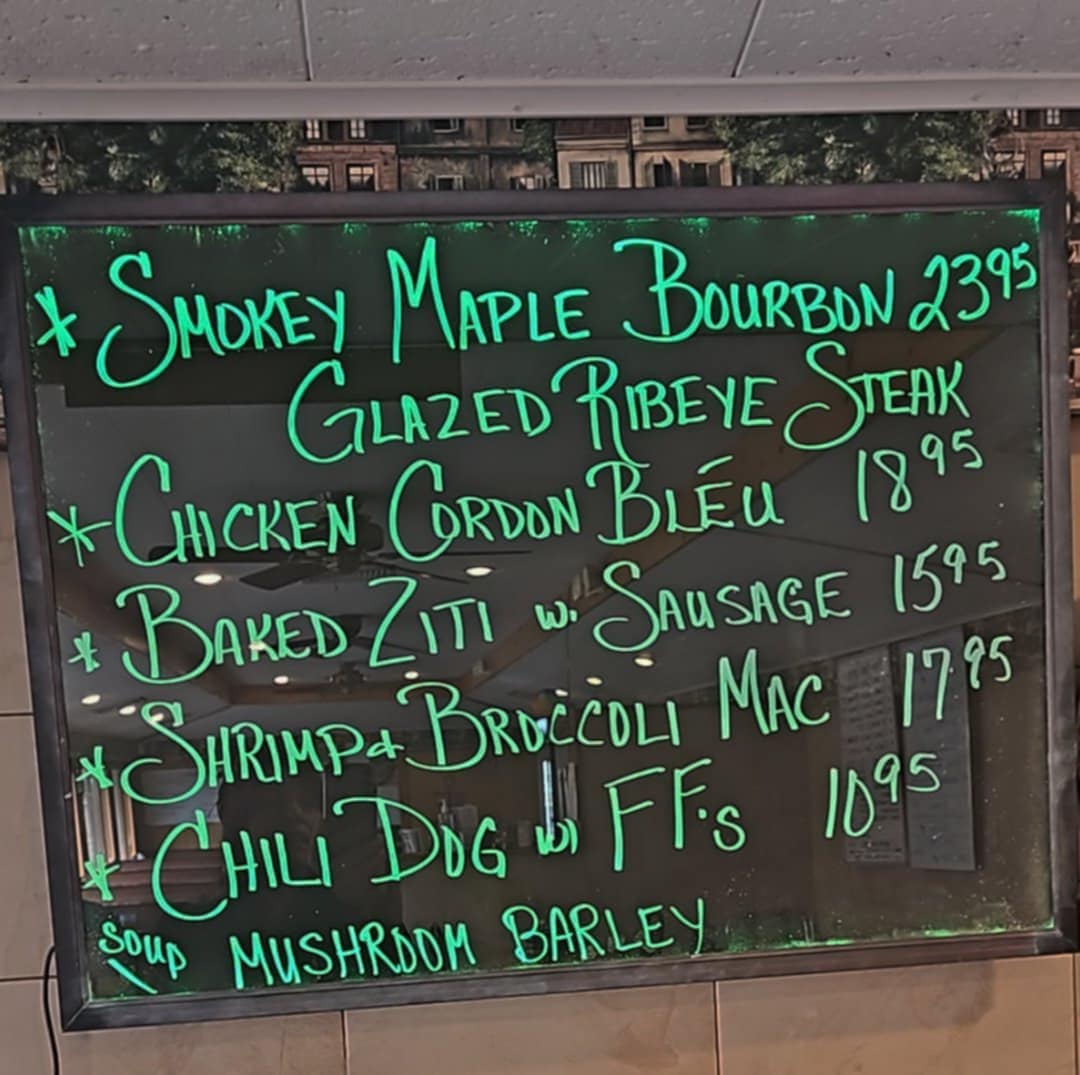 * SMOKEY MAPLE BOURBON 2395
GLAZED RIBEYE STEAK
* CHICKEN CORDON BLÉU 1895
* BAKED ZITI w. SAUSAGE 1595
* SHRIMP & BROCCOLI MAC 17.95
* CHILI DOG w/ FF's 1095
SOUP MUSHROOM BARLEY